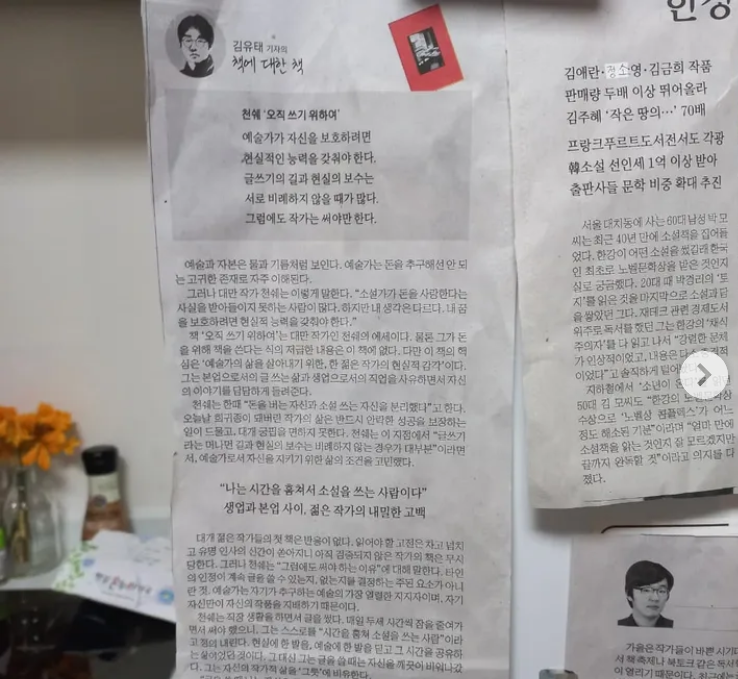 김유태 기자의
책에 대한 책
천쉐 '오직 쓰기 위하여'
예술가가 자신을 보호하려면
현실적인 능력을 갖춰야 한다.
글쓰기의 길과 현실의 보수는
서로 비례하지 않을 때가 많다.
그럼에도 작가는 써야만 한다.
예술과 자본은 물과 기름처럼 보인다. 예술가는 돈을 추구해선 안 되
는 고귀한 존재로 자주 이해된다.
그러나 대만 작가 천쉐는 이렇게 말한다. "소설가가 돈을 사랑한다는
사실을 받아들이지 못하는 사람이 많다. 하지만 내 생각은 다르다. 내 꿈
을 보호하려면 현실적 능력을 갖춰야 한다."
책 '오직 쓰기 위하여'는 대만 작가인 천쉐의 에세이다. 물론 그가 돈
을 위해 책을 쓴다는 식의 저급한 내용은 이 책에 없다. 다만 이 책의 핵
심은 '예술가의 삶을 살아내기 위한, 한 젊은 작가의 현실적 감각'이다.
그는 본업으로서의 글 쓰는 삶과 생업으로서의 직업을 사유하면서 자신
의 이야기를 담담하게 들려준다.
천쉐는 한때 "돈을 버는 자신과 소설 쓰는 자신을 분리했다"고 한다.
오늘날 희귀종이 돼버린 작가의 삶은 반드시 안락한 성공을 보장하는
일이 드물고, 대개 궁핍을 면하지 못한다. 천쉐는 이 지점에서 "글쓰기
라는 머나먼 길과 현실의 보수는 비례하지 않는 경우가 대부분"이라면
서, 예술가로서 자신을 지키기 위한 삶의 조건을 고민했다.
"나는 시간을 훔쳐서 소설을 쓰는 사람이다"
생업과 본업 사이, 젊은 작가의 내밀한 고백
대개 젊은 작가들의 첫 책은 반응이 없다. 읽어야 할 고전은 차고 넘치
고 유명 인사의 신간이 쏟아지니 아직 검증되지 않은 작가의 책은 무시
당한다. 그러나 천쉐는 "그럼에도 써야 하는 이유"에 대해 말한다. 타인
의 인정이 계속 글을 쓸 수 있는지, 없는지를 결정하는 주된 요소가 아니
란 것. 예술가는 자기가 추구하는 예술의 가장 열렬한 지지자이며, 자기
자신만이 자신의 작품을 지배하기 때문이다.
천쉐는 직장 생활을 하면서 글을 썼다. 매일 두세 시간씩 잠을 줄여가
면서 써야 했으니, 그는 스스로를 "시간을 훔쳐 소설을 쓰는 사람"이라
고 정의 내린다. 현실에 한 발을, 예술에 한 발을 딛고 그 시간을 공유하
는 삶이었던 것이다. 그 대신 그는 글을 쓸 때는 자신을 깨끗이 비워나갔
다. 그는 자신의 작가적 삶을 "그릇"에 비유한다.
한강
김애란·정소영·김금희 작품
판매량 두배 이상 뛰어올라
김주혜 '작은 땅의…' 70배
프랑크푸르트도서전서도 각광
韓소설 선인세 1억 이상 받아
출판사들 문학 비중 확대 추진
서울 대치동에 사는 60대 남성 박 모
씨는 최근 40년 만에 소설책을 집어들
었다. 한강이 어떤 소설을 썼길래 한국
인 최초로 노벨문학상을 받은 것인지
심로 궁금했다. 20대 때 박경리의 '토
지'를 읽은 것을 마지막으로 소설과 담
을 쌓았던 그다. 재테크 관련 경제도서
위주로 독서를 했던 그는 한강의 '채식
주의자'를 다 읽고 나서 "강렬한 문체
가 인상적이었고, 내용은 다소 충격적
이었다"고 솔직하게 털어
지하철에서 '소년이
50대 김 모씨도 "한강의
수상으로 '노벨상 콤플렉스'가 어느
정도 해소된 기분"이라며 "얼마 만에
소설책을 읽는 것인지 잘 모르겠지만
끝까지 완독할 것"이라고 의지를 다
졌다.
가을은 작가들이 바쁜 시기다
서 책 축제나 북토크 같은 독서
이 열리기 때문이다.